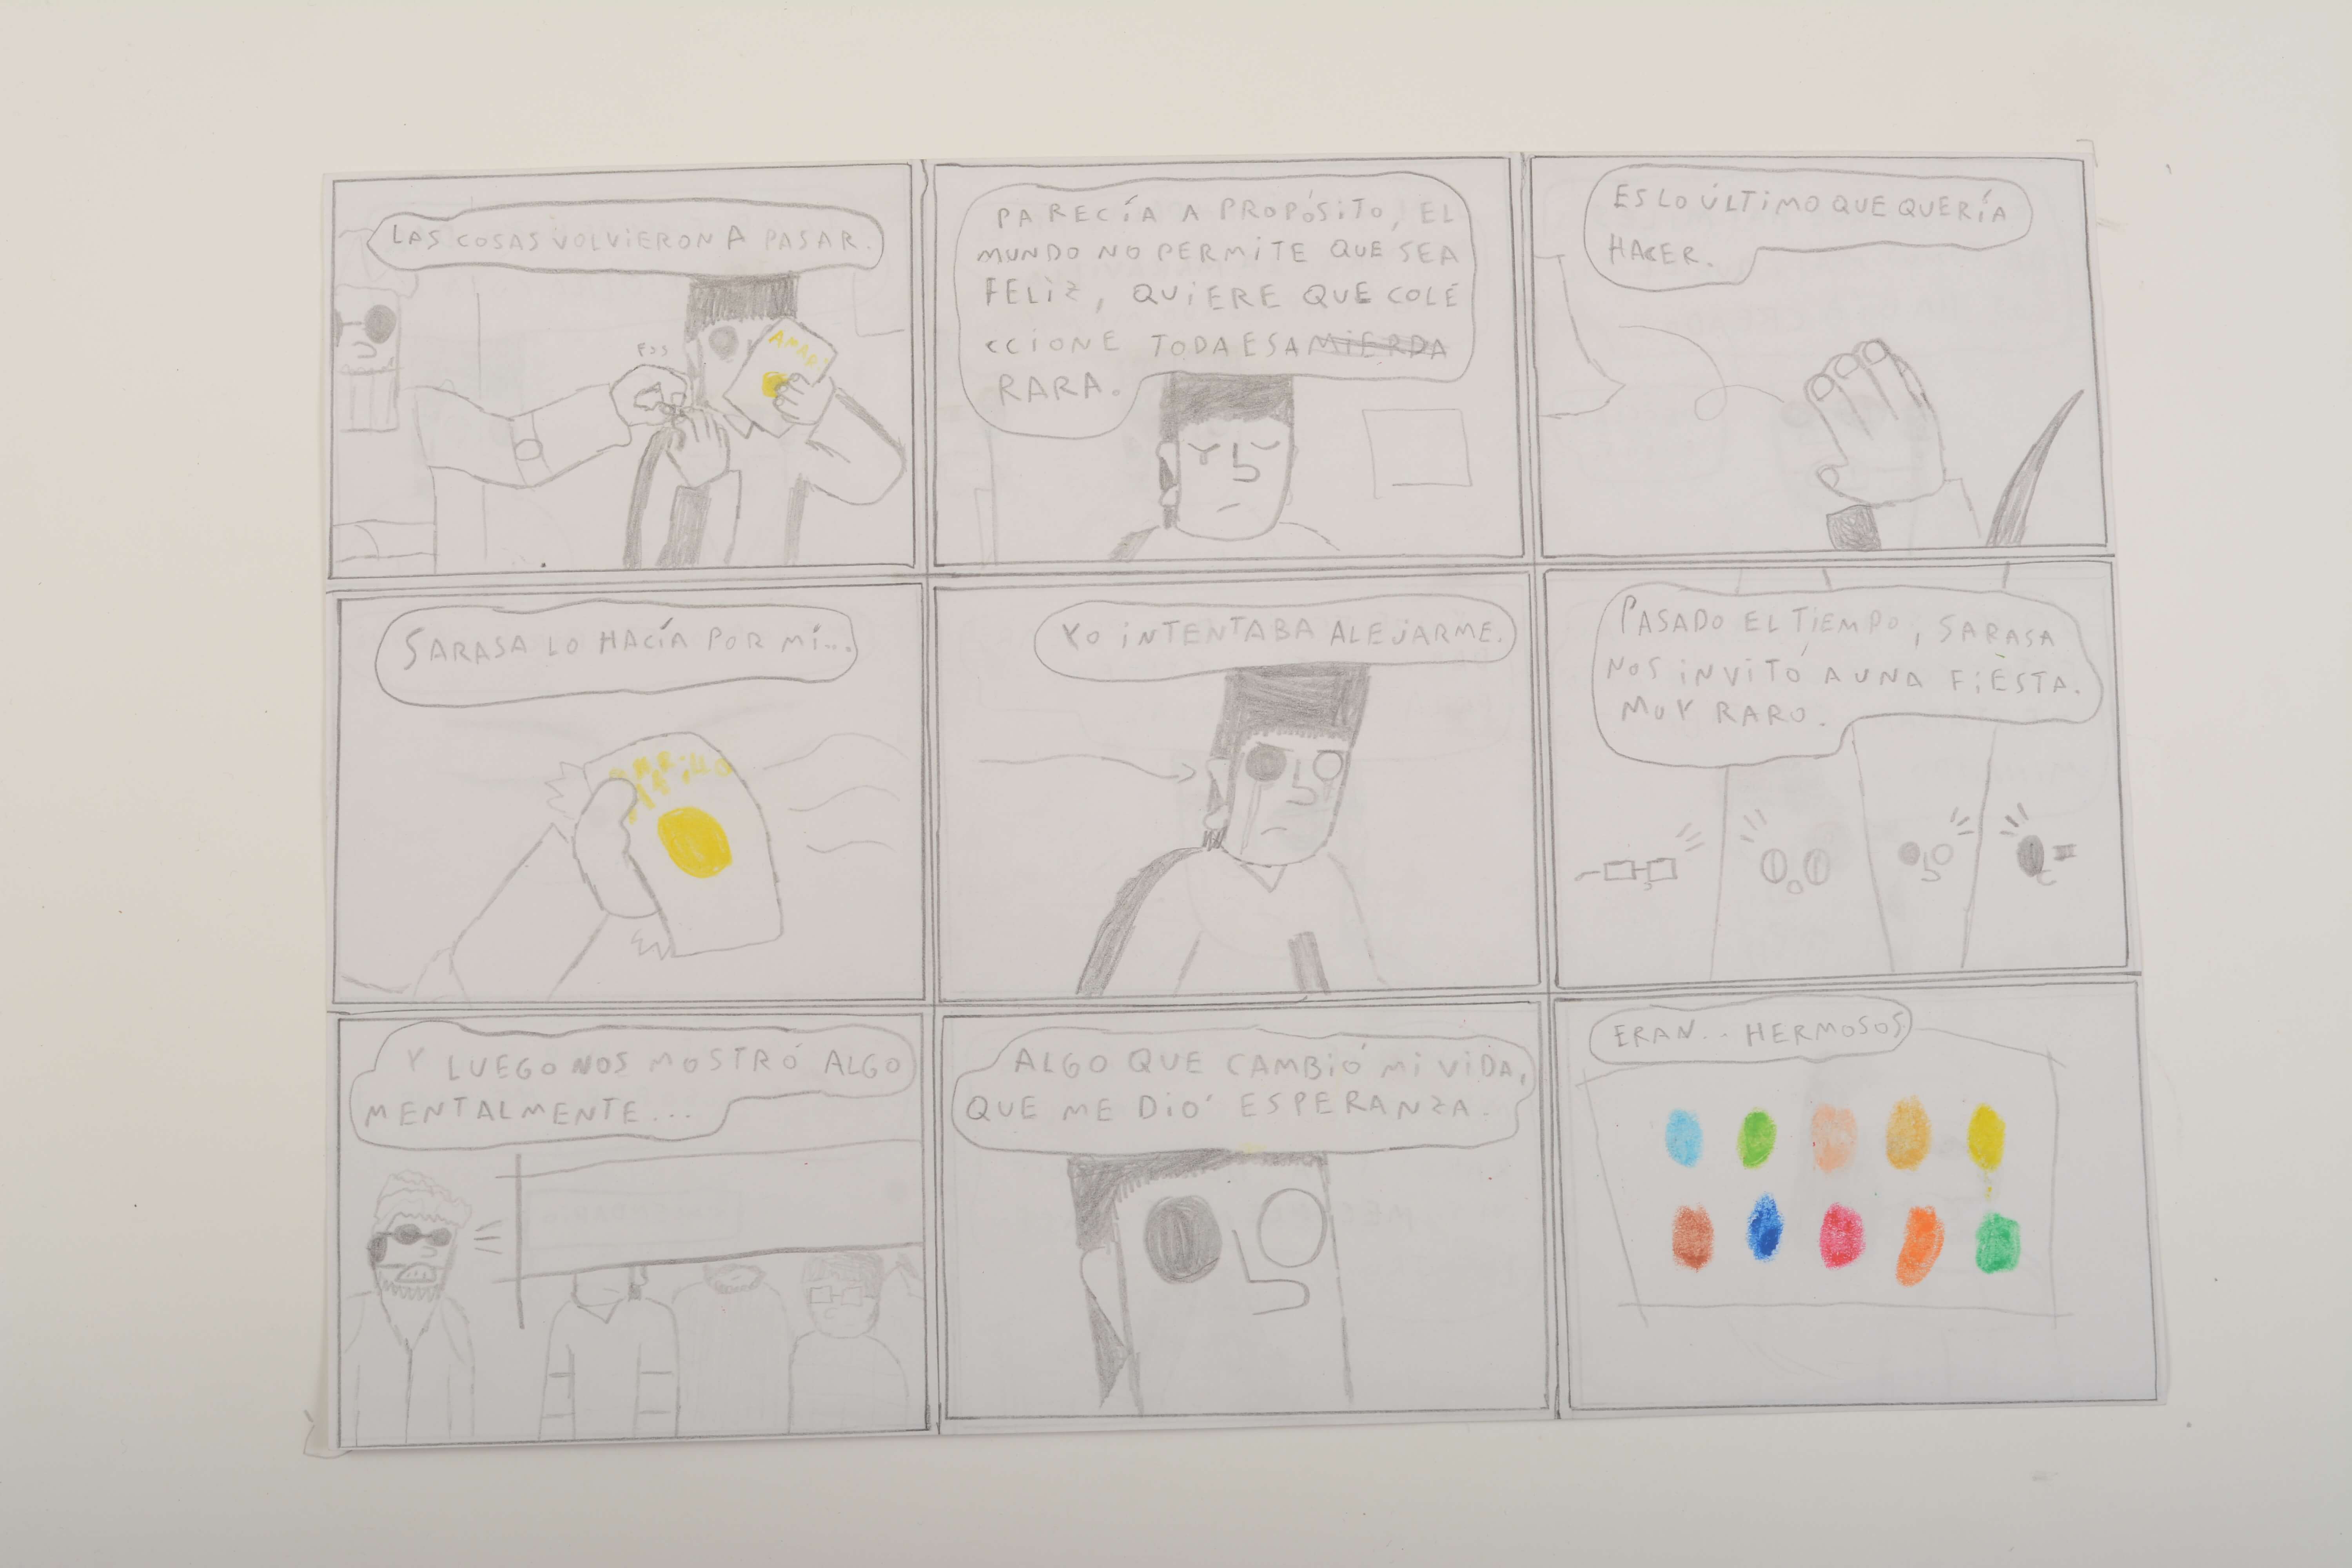 LAS COSAS VOLVIERON A PASAR.
PARECÍA A PROPÓSITO, EL
MUNDO NO PERMITE QUE SEA
FELIZ, QUIERE QUE COLE
CCIONE TODA ESA MIERDA
RARA.
ES LO ÚLTIMO QUE QUERÍA
HACER.
SARASA LO HACÍA POR MÍ...
YO INTENTABA ALEJARME.
PASADO EL TIEMPO, SARASA
NOS INVITÓ A UNA FIESTA.
MUY RARO.
Y LUEGO NOS MOSTRÓ ALGO
MENTALMENTE...
ALGO QUE CAMBIÓ MI VIDA,
QUE ME DIO' ESPERANZA.
ERAN.. HERMOSOS